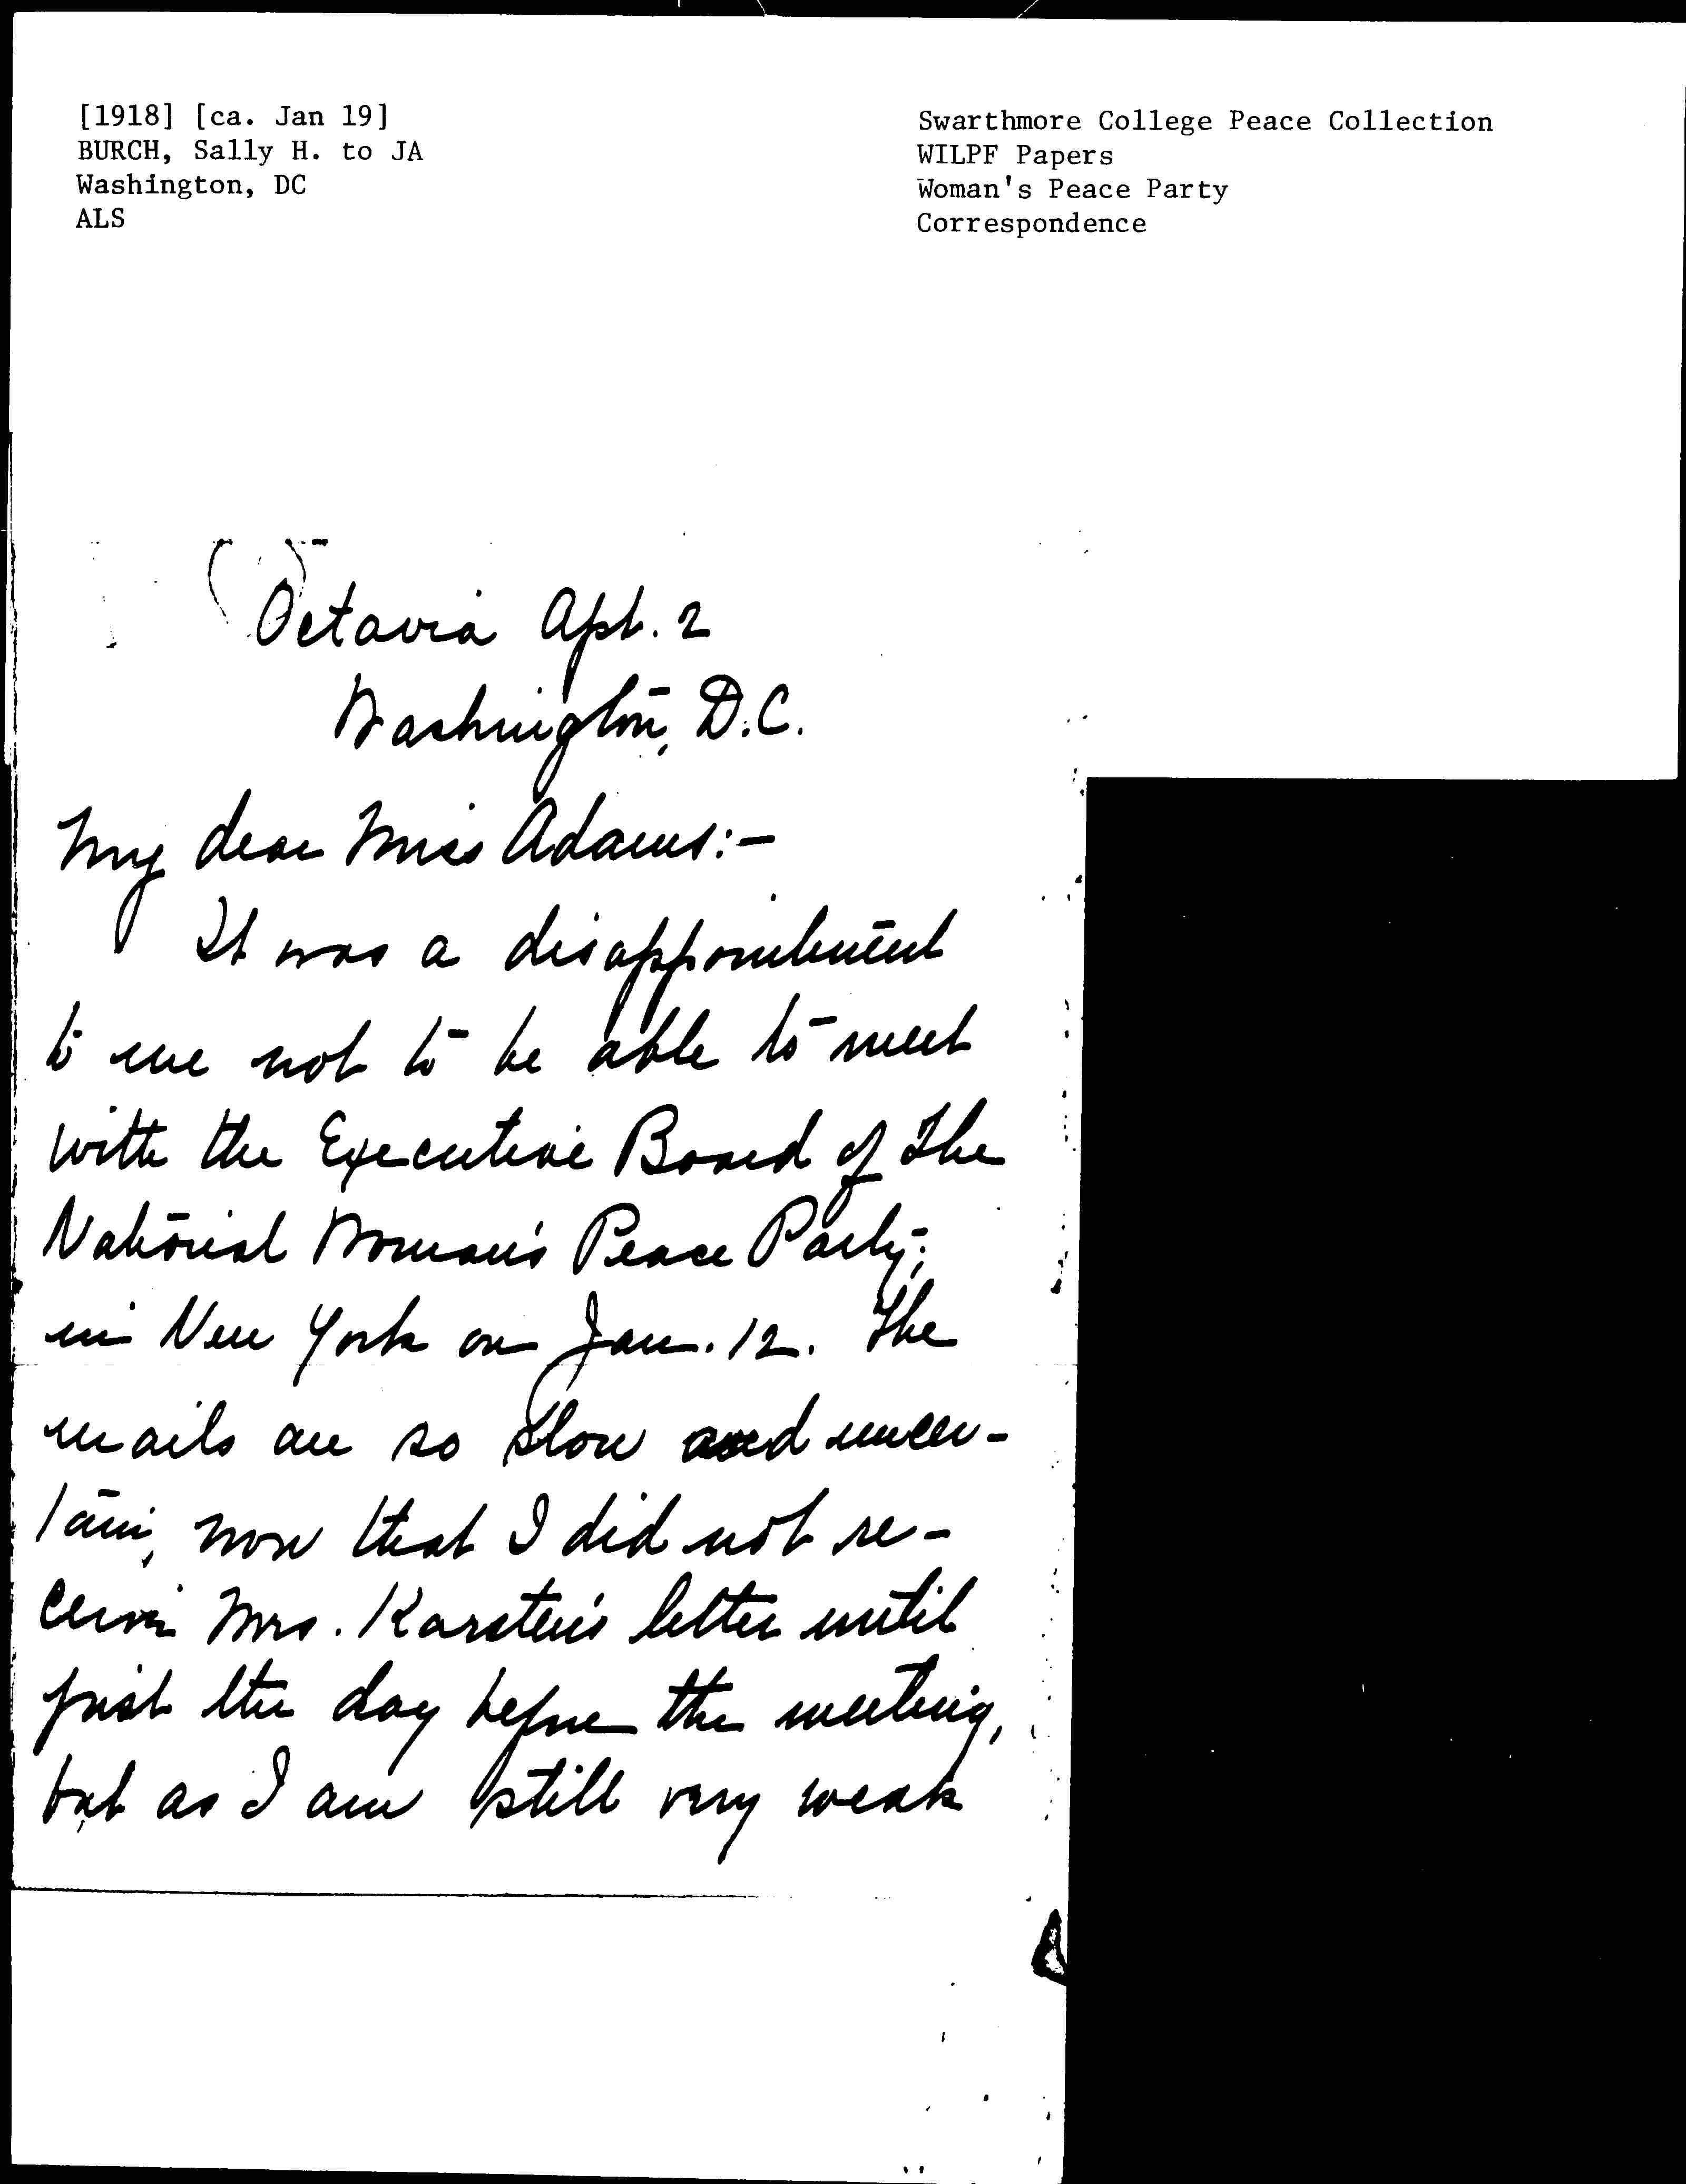 [1918] [ca. Jan 19]
BURCH, Sally H. to JA
Washington, DC
ALS
Swarthmore College Peace Collection
WILPF Papers
Woman's Peace Party
Correspondence
Octavia Apt. 2
Washington, D.C.
My dear Miss Adams:-
It was a disappointment
to me not to be able to meet
with the Executive Board of the
National Woman's Peace Party,
in New York on Jan. 12. The
mails are so slow and uncer-
tain, now that I did not re-
ceive Mrs. Karsten's letter until
just the day before the meeting,
but as I am still very weak